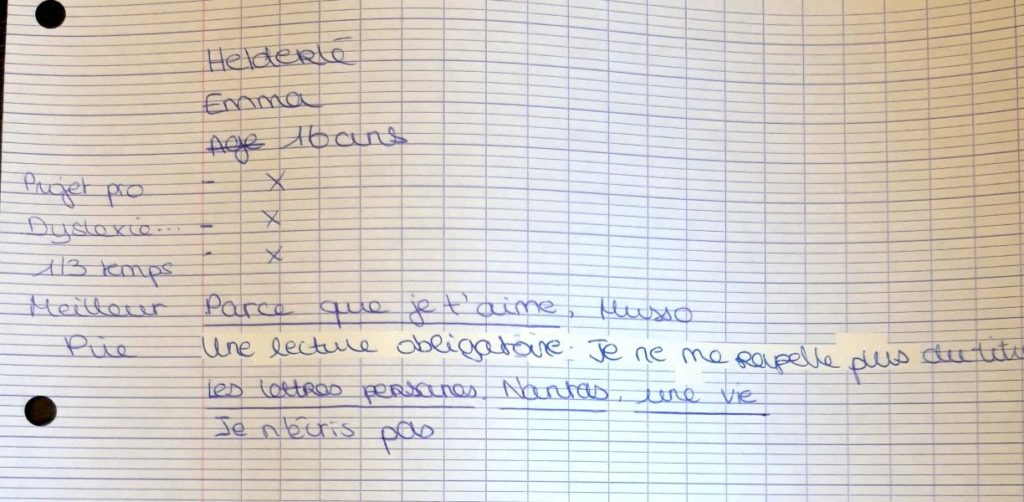 Helderlé
Emma
Age 16 ans
Projet pro - X
Dyslexie... - X
1/3 temps - X
Meilleur Parce que je t'aime, Musso
Pire Une lecture obligatoire. Je ne me rapelle plus du titr
Les lettres persanes, Nantas, une vie
Je n'écris pas